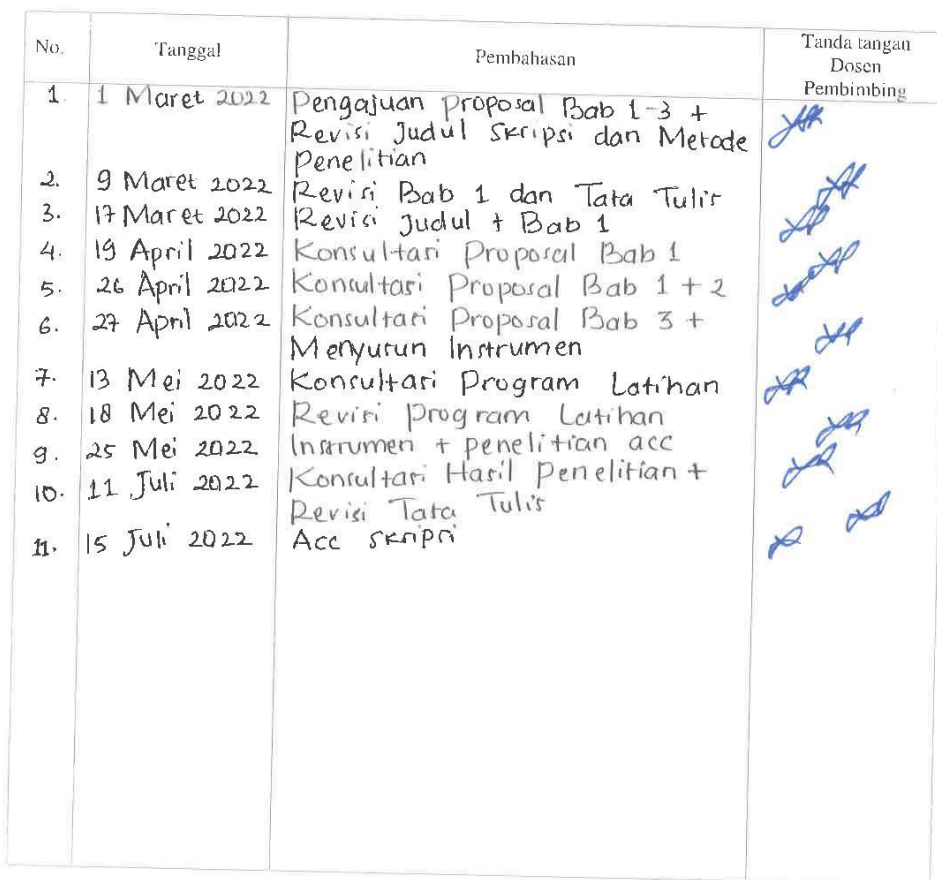 No. Tanggal Pembahasan Tanda tangan
Dosen
Pembimbing
1. 1 Maret 2022 Pengajuan Proposal Bab 1-3 +
Revisi Judul Skripsi dan Metode
Penelitian
2. 9 Maret 2022 Revisi Bab 1 dan Tata Tulis
3. 17 Maret 2022 Revisi Judul + Bab 1
4. 19 April 2022 Konsultasi Proposal Bab 1
5. 26 April 2022 Konsultasi Proposal Bab 1 + 2
6. 27 April 2022 Konsultasi Proposal Bab 3 +
Menyusun Instrumen
7. 13 Mei 2022 Konsultasi Program Latihan
8. 18 Mei 2022 Revisi Program Latihan
9. 25 Mei 2022 Instrumen + penelitian acc
10. 11 Juli 2022 Konsultasi Hasil Penelitian +
Revisi Tata Tulis
11. 15 Juli 2022 Acc skripsi